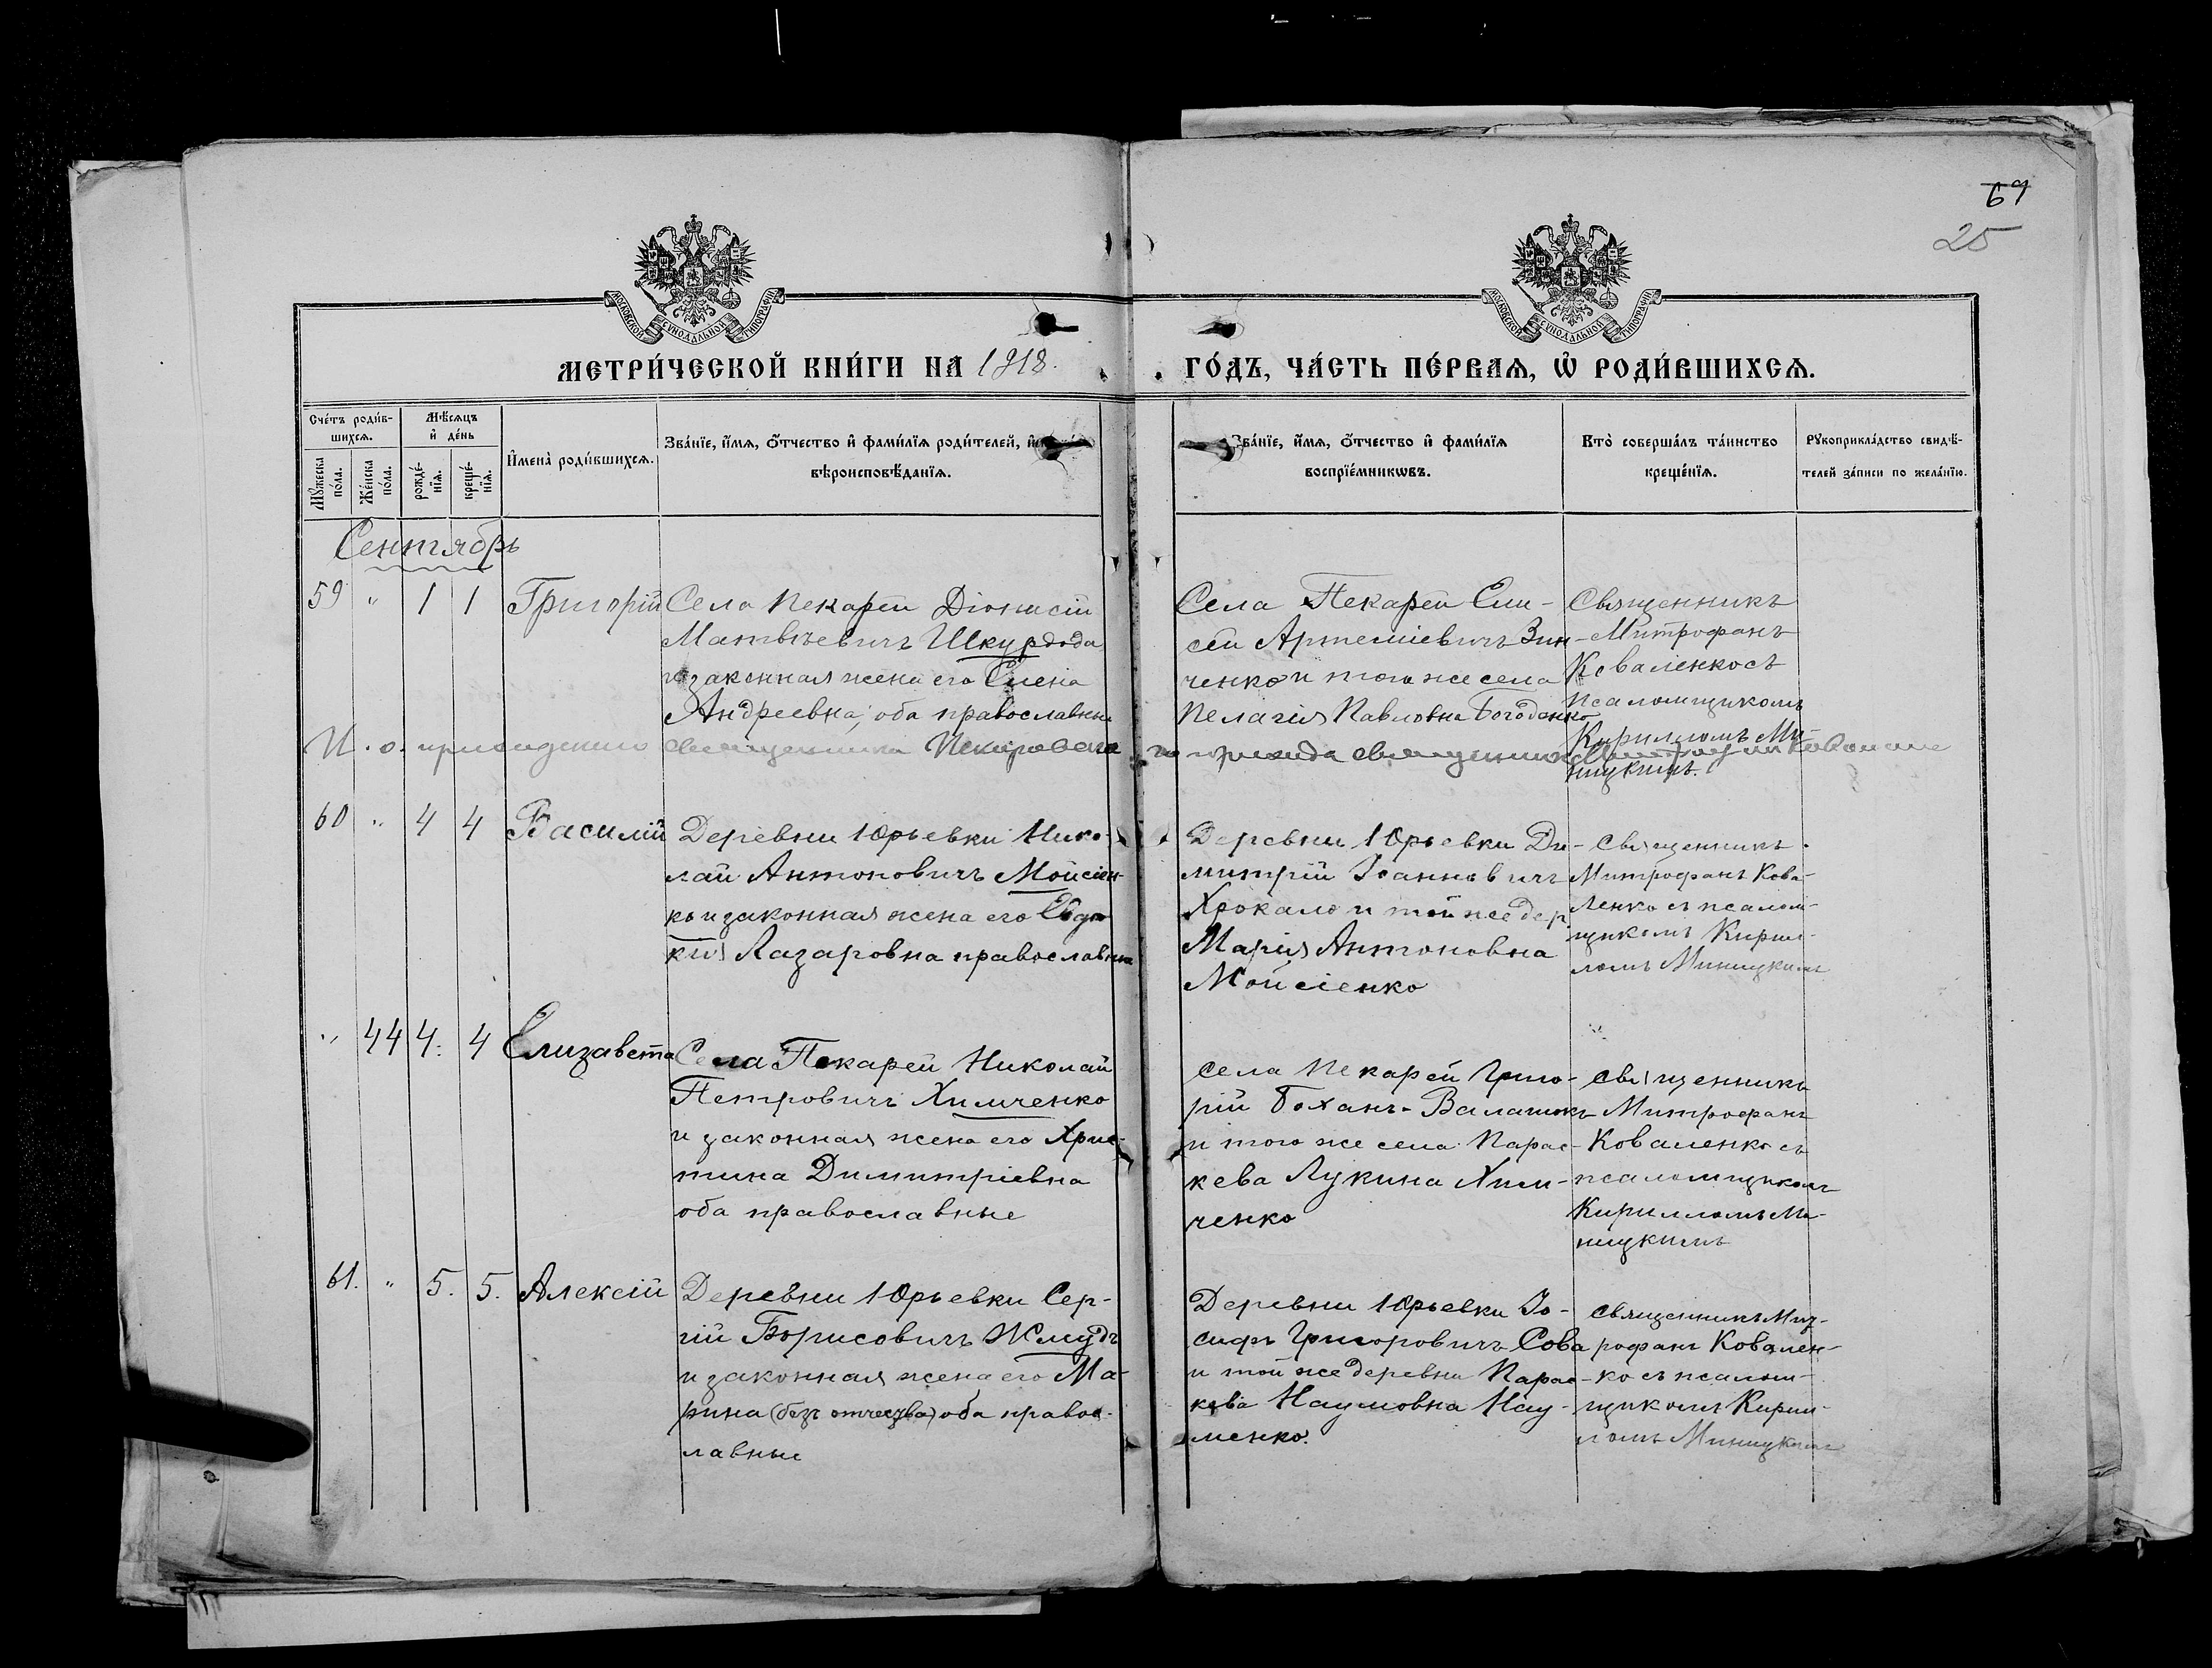 69
25
МОСКОВСКОЙ СУНОДАЛЬНОЙ ТИПОГРАФІИ
МОСКОВСКОЙ СУНОДАЛЬНОЙ ТИПОГРАФІИ
МЕТРИ́ЧЕСКОЙ КНИ́ГИ НА 1918. ГО́ДЪ, ЧА́СТЬ ПЕ́РВАЯ, Ѡ҆ РОДИ́ВШИХСЯ.
Сче́тъ роди́в-
шихся.
Мѣ́сяцъ
и҆ де́нь
Мꙋ́жеска
по́ла.
Же́нска
по́ла.
рожде́-
нїя.
креще́-
нїя.
И҆мена̀ роди́вшихся.
Зва́нїе, и҆́мя, ѻ҆́тчество и҆ фами́лїя роди́телей, и҆
вѣроисповѣ́данїя.
Зва́нїе, и҆́мя, ѻ҆́тчество и҆ фами́лїя
воспрїе́мникѡвъ.
Кто̀ соверша́лъ та́инство
креще́нїя.
Рꙋкоприкла́дство свидѣ́-
телей за́писи по жела́нїю.
Сентябрь
59 " 1 1 Григорій
Села Пекарей Діонисій
Матвѣевичъ Шкурдода
и законная жена его Елена
Андреевна, оба православные
Села Пекарей Ели-
сей Артеміевичъ Зин-
ченко и того же села
Пелагія Павловна Богоданко
Священникъ
Митрофанъ
Коваленко съ
псаломщикомъ
Кирилломъ Ми-
ницкимъ.
И. о. приходскаго священника Пекаровска го прихода священник
60 " 4 4 Василій
Деревни Юрьевки Нико-
лай Антоновичъ Мойсіен-
ко и законная жена его Евдо-
кія Лазаровна православные
Деревни Юрьевки Ди-
митрій Іоанновичъ
Хрокало и той же дер.
Марія Антоновна
Мойсіенко
Священникъ
Митрофанъ Кова-
ленко съ псалом-
щикомъ Кирил-
ломъ Миницкимъ
" 44 4. 4 Елизавета
Села Пекарей Николай
Петровичъ Химченко
и законная жена его Хрис-
тина Димитріевна
оба православные
Села Пекарей Григо-
рій Бохан-Валашокъ
и того же села Парас-
кева Лукина Хим-
ченко
Священникъ
Митрофанъ
Коваленко съ
псаломщикомъ
Кирилломъ Ми-
ницкимъ
61. " 5. 5. Алексій
Деревни Юрьевки Сер-
гій Борисовичъ Жмудь
и законная жена его Ма-
рина (безъ отчества) оба правос-
лавные
Деревни Юрьевки Іо-
сифъ Григоровичъ Сова
и той же деревни Парас-
кева Наумовна Нау-
менко.
Священникъ Мит-
рофанъ Ковален-
ко съ псалом-
щикомъ Кирил-
ломъ Миницкимъ